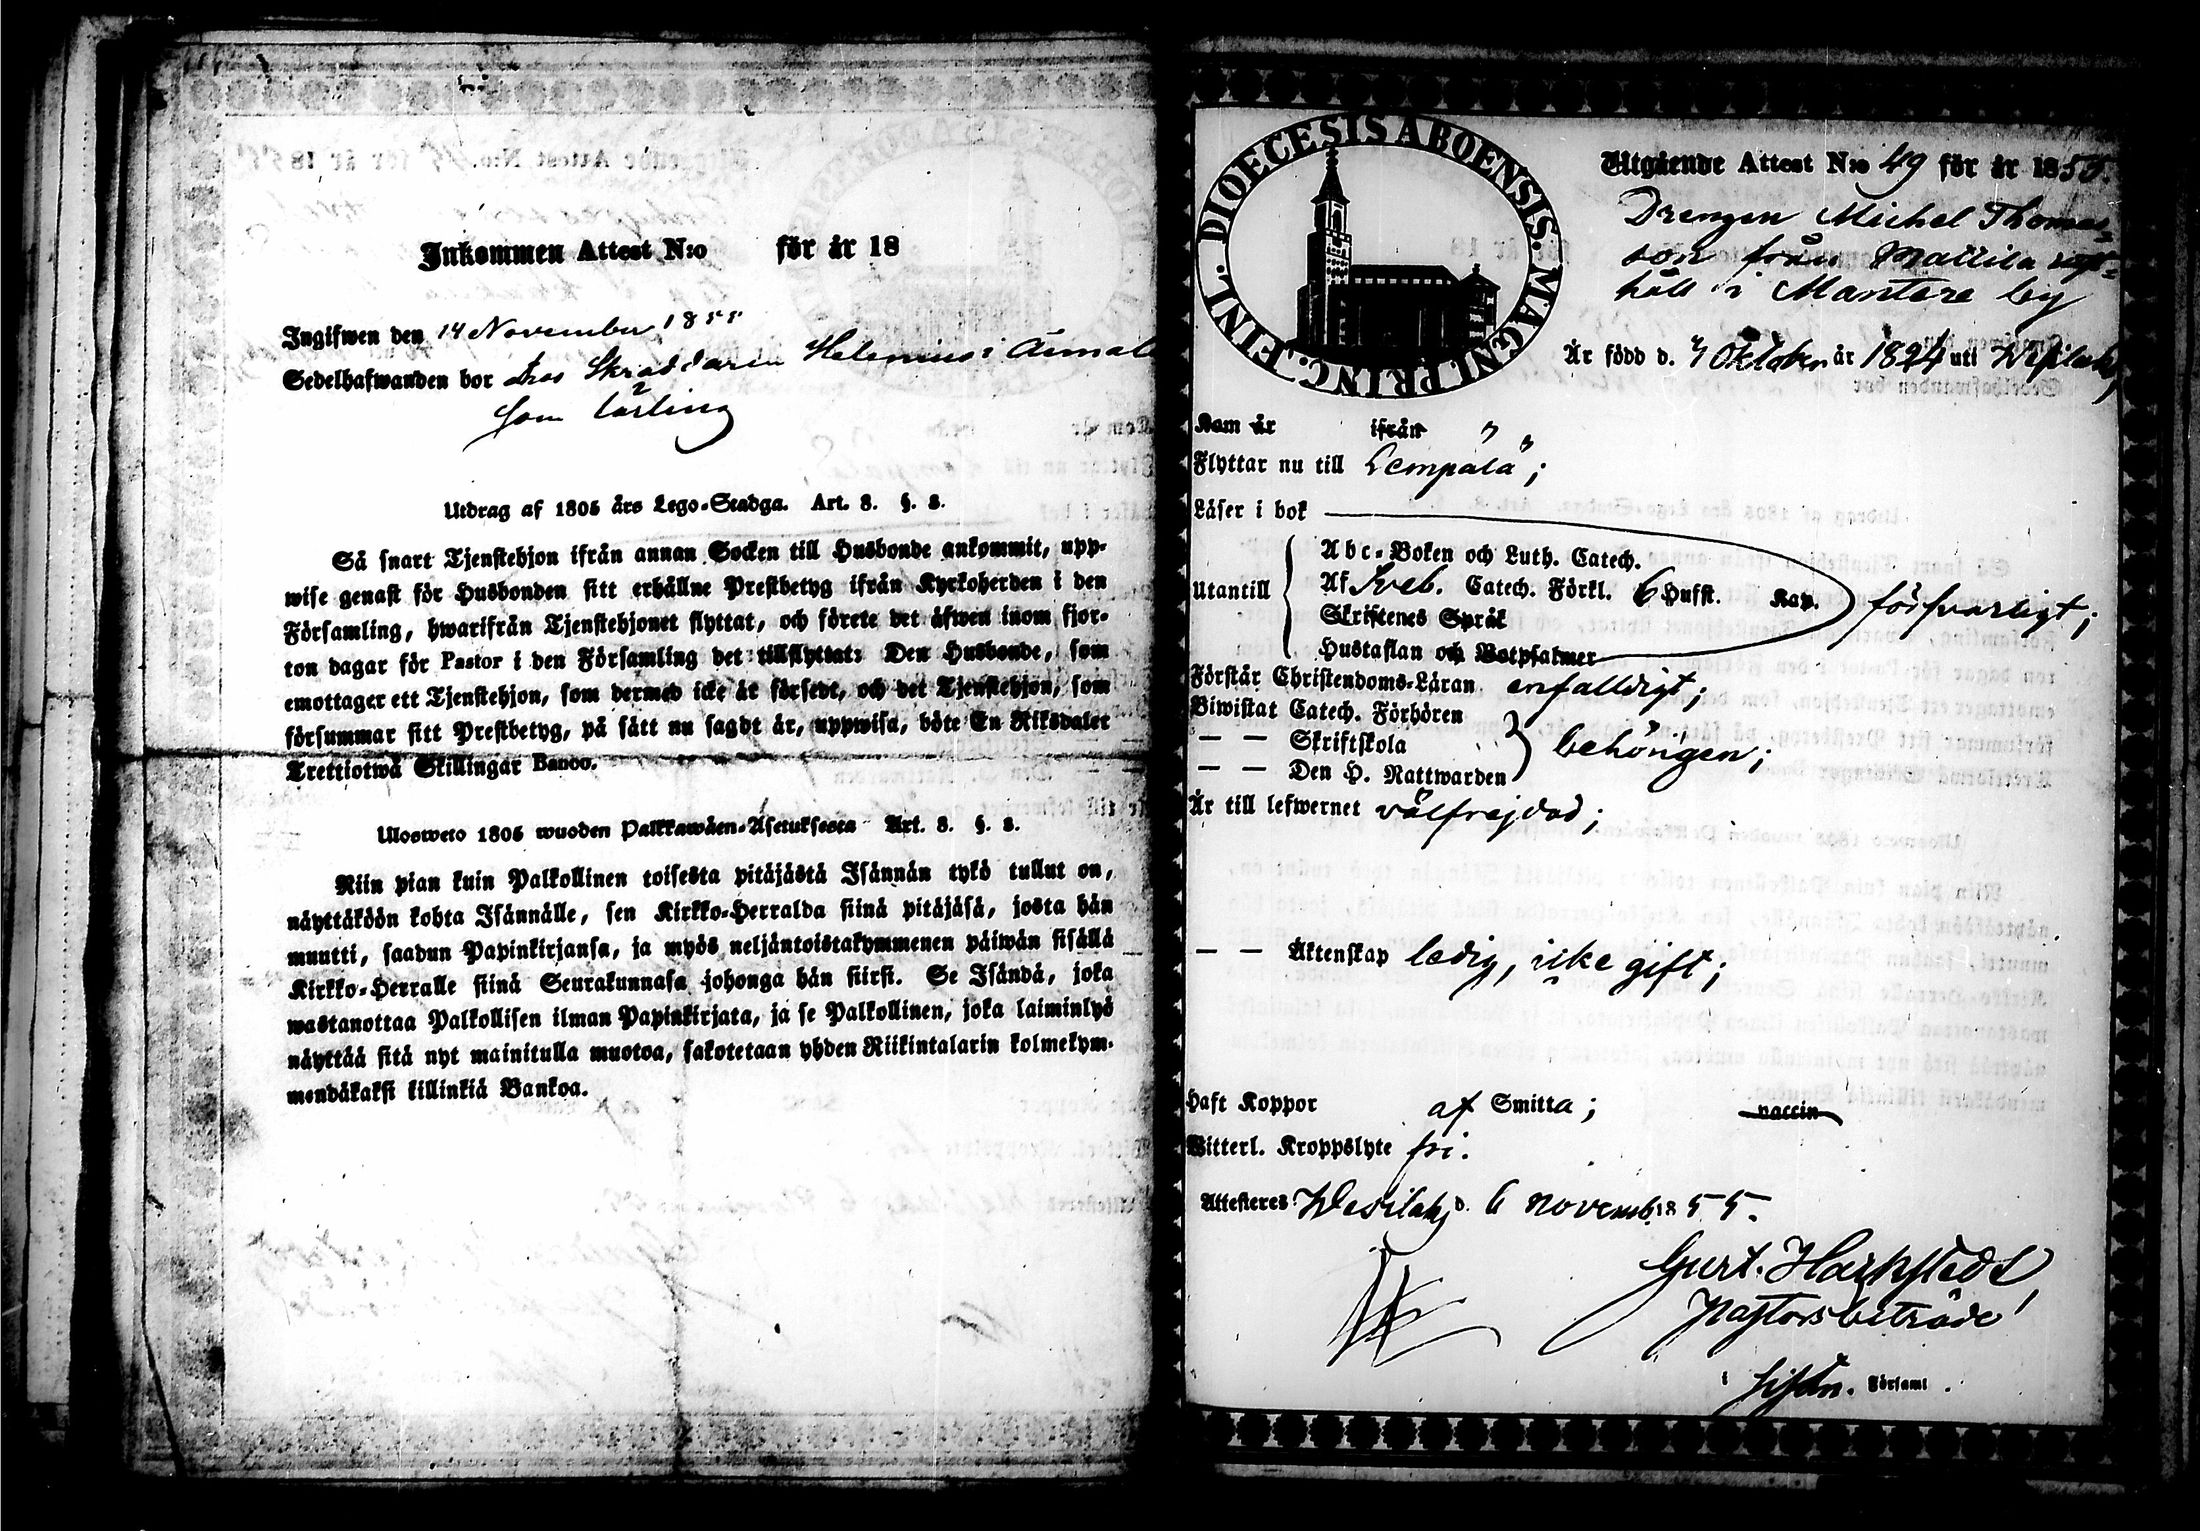 Inkommen Attest N:o för år 18
Ingifwen den 14 November 1855
Sedelhafwanden bor hos Skräddaren Helenius i
som lärling
Utdrag af 1805 års Lego-Stadga. Art. 8. §. 8.
Så snart Tjenstehjon ifrån annan Socken till Husbonde ankommit, upp-
wise genast för Husbonden sitt erhållne Prestbetyg ifrån Kyrkoherden i den
Församling, hwarifrån Tjenstehjonet flyttat, och förete det äfwen inom fjor-
ton dagar för Pastor i den Församling det tillflyttat: Den Husbonde, som
emottager ett Tjenstehjon, som dermed icke är försedt, och det Tjenstehjon, som
försummar sitt Prestbetyg, på sätt nu sagdt är, uppwisa, böte En Riksdaler
Trettiotwå Skillingar Banco.
Ulosweto 1805 wuoden Palkkawäen-Asetuksesta Art. 8. §. 8.
Niin pian kuin Palkollinen toisesta pitäjästä Isännän tykö tullut on,
näyttäköön kohta Isännälle, sen Kirkko-Herralda siinä pitäjäsä, josta hän
muutti, saadun Papinkirjansa, ja myös neljäntoistakymmenen päiwän sisällä
Kirkko-Herralle siinä Seurakunnasa johonga hän siirsi. Se Isändä, joka
wastanottaa Palkollisen ilman Papinkirjata, ja se Palkollinen, joka laiminlyö
näyttää sitä nyt mainitulla muotoa, sakotetaan yhden Riikintalarin kolmekym-
mendäkaksi killinkiä Bankoa.
DIOECESIS ABOENSIS. MAGNI PRINC. FINL.
Utgående Attest N:o 49 för år 1855.
Drengen Michel Thomas-
son från Mattila
håll i Mantere by
Är född d. 7 Oktober år 1824 uti Wesilaks,
Kom år ifrån "
Flyttar nu till Lempälä;
Läser i bok
Utantill
Abc-Boken och Luth. Catech.
Af Sveb. Catech. Förkl. 6 Hufst. Kap.
Skriftenes Språk
Hustaflan och Botpsalmer
försvarligt;
Förstår Christendoms-Läran enfalldigt;
Biwistat Catech. Förhören
— — Skriftskola
— — Den H. Nattwarden
behörigen;
Är till lefwernet välfrejdad;
— — Äktenskap ledig, icke gift;
Haft Koppor af Smitta; vaccin
Witterl. Kroppslyte fri.
Attesteras Wesilaks d. 6 novemb. 1855.
Gust.
Pastorsbiträde
i Församl.